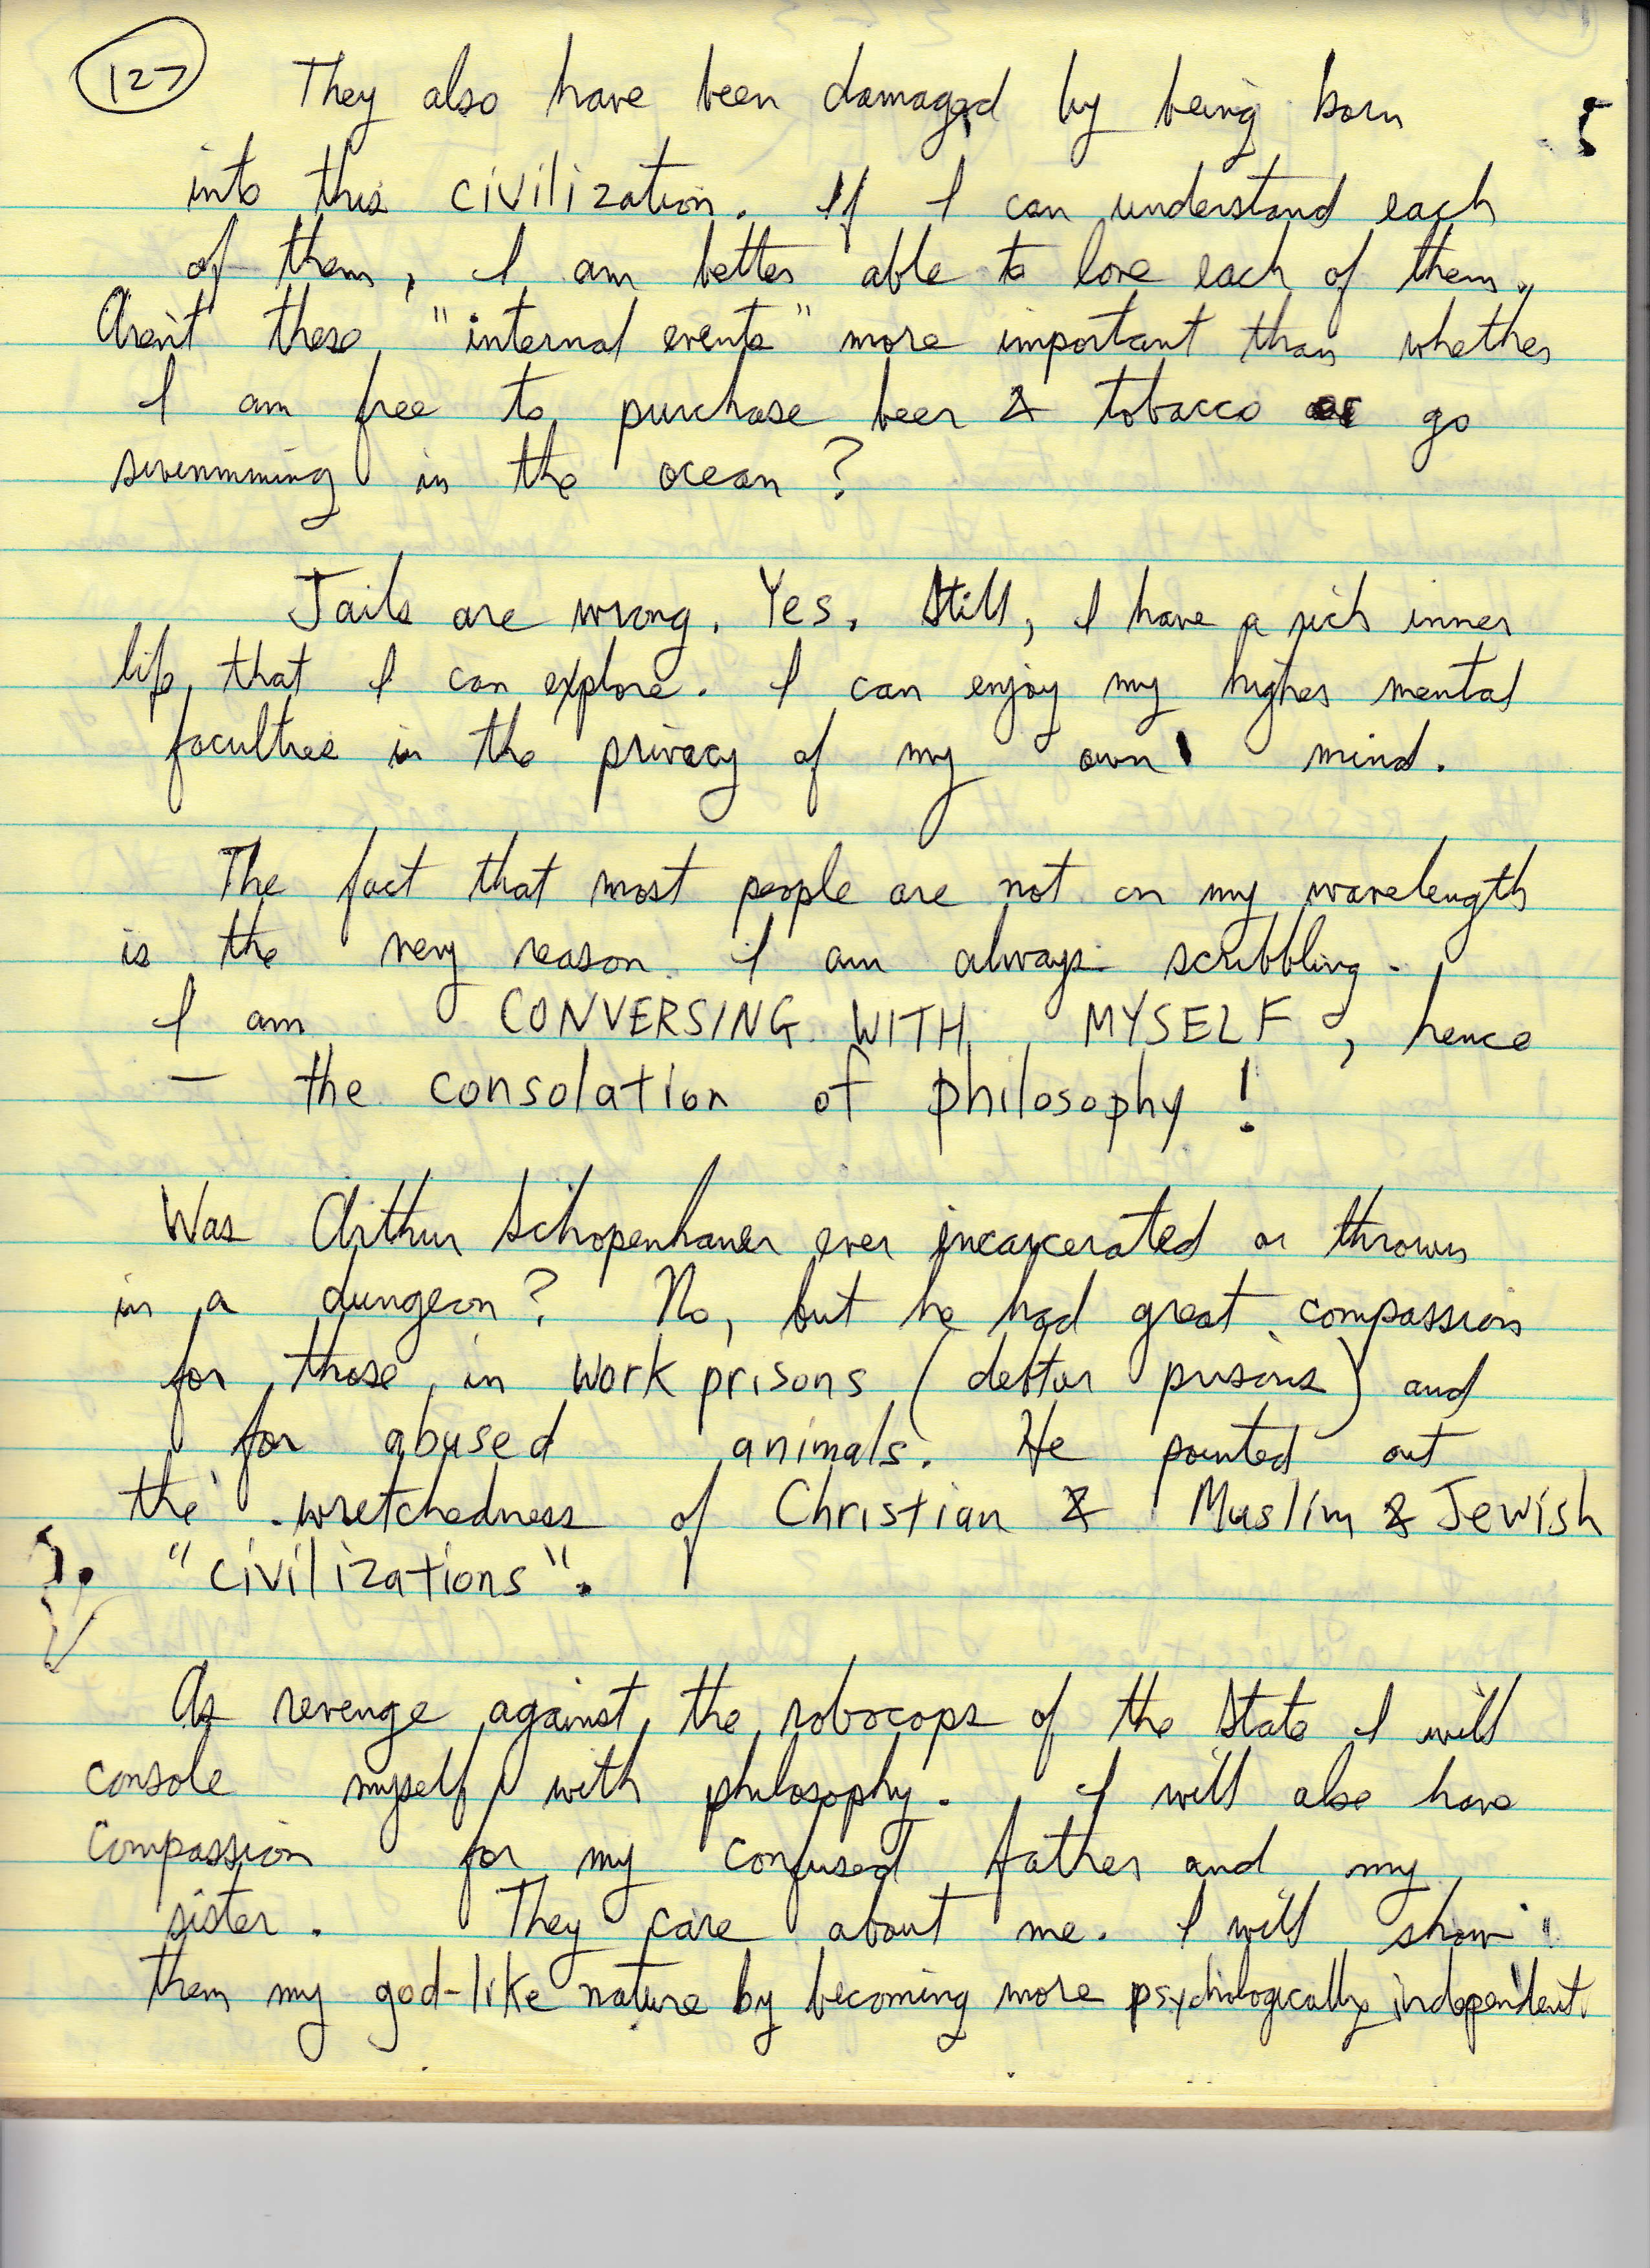 127
They also have been damaged by being born
into this civilization. If I can understand each
of them, I am better able to love each of them.
Aren't these "internal events" more important than whether
I am free to purchase beer & tobacco or go
swimming in the ocean?
Jails are wrong. Yes. Still, I have a rich inner
life that I can explore. I can enjoy my higher mental
faculties in the privacy of my own mind.
The fact that most people are not on my wavelength
is the very reason I am always scribbling.
I am CONVERSING WITH MYSELF, hence
— the consolation of philosophy!
Was Arthur Schopenhauer ever incarcerated or thrown
in a dungeon? No, but he had great compassion
for those in work prisons (debtor prisons) and
for abused animals. He pointed out
the wretchedness of Christian & Muslim & Jewish
"civilizations".
As revenge against the robocops of the State I will
console myself with philosophy. I will also have
compassion for my confused father and my
sister. They care about me. I will show
them my god-like nature by becoming more psychologically independent.